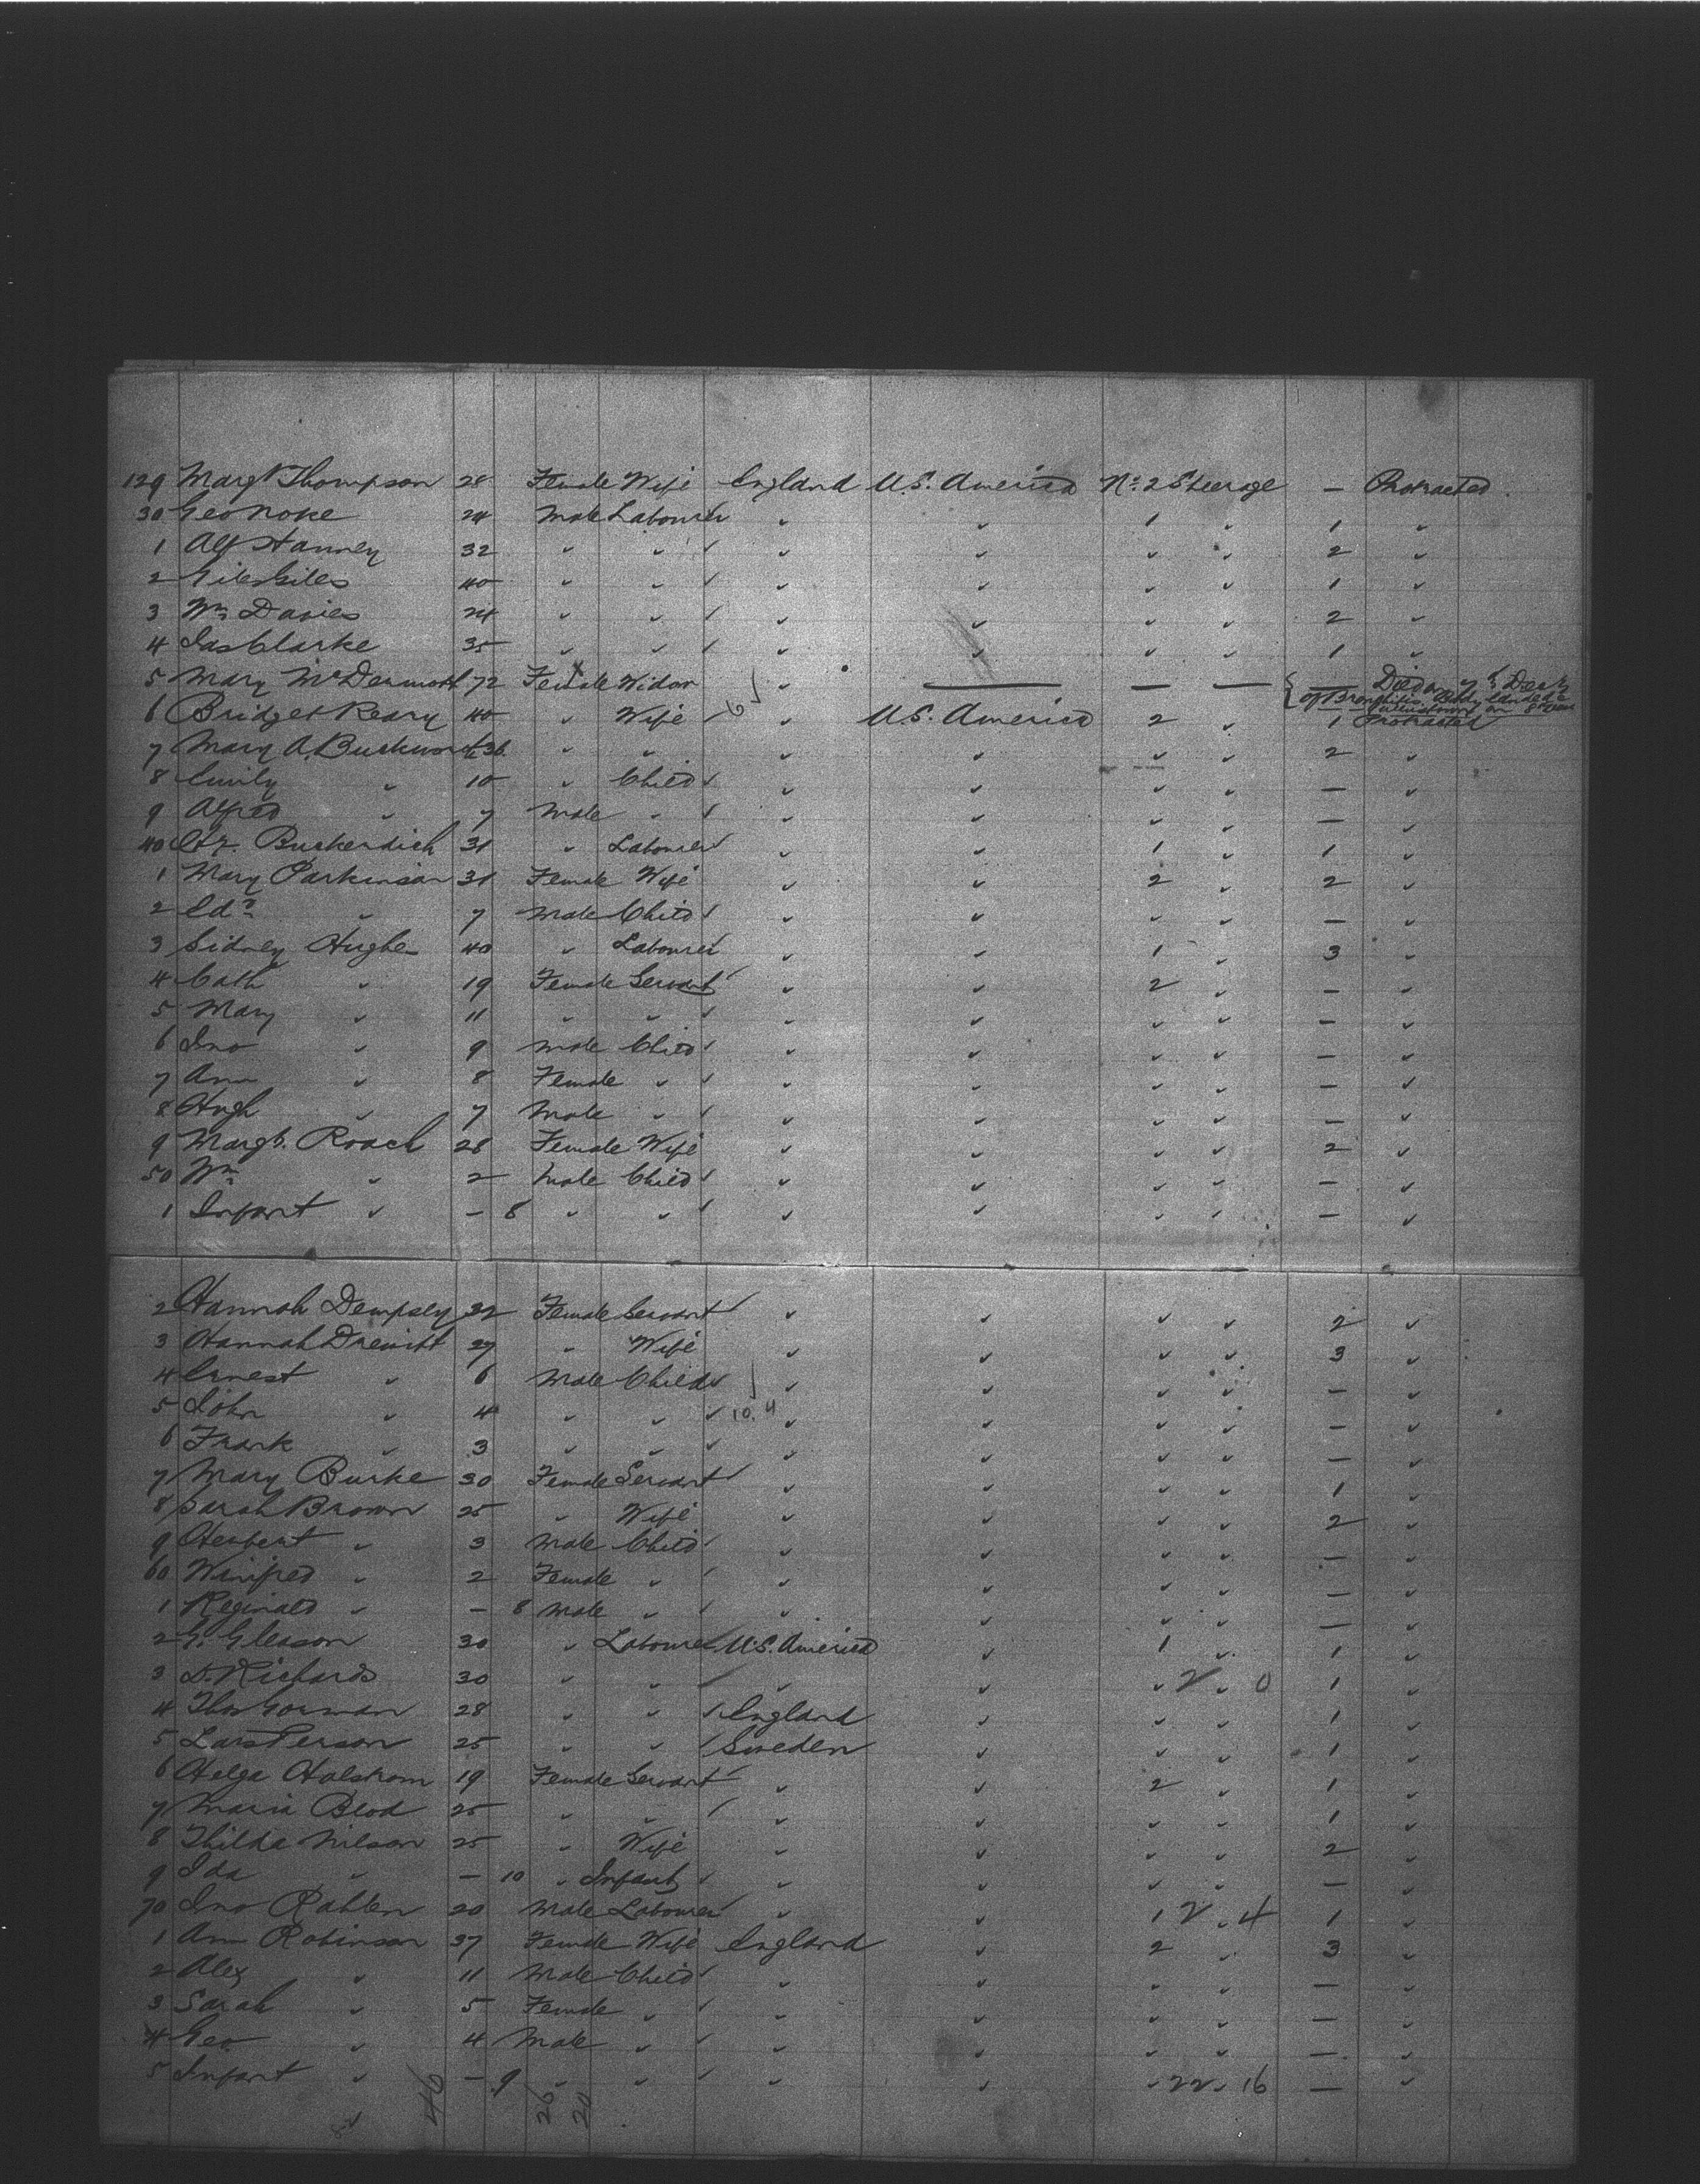 129 Margt Thompson 28 Female Wife England U.S. America No. 2 Steerage — Protracted.
30 Geo Noke 24 Male Labourer ✓ ✓ 1 ✓ 1 ✓
1 Alf Hanney 32 ✓ ✓ ✓ ✓ ✓ ✓ 2 ✓
2 Giles Giles 40 ✓ ✓ ✓ ✓ ✓ ✓ 1 ✓
3 Wm Davies 24 ✓ ✓ ✓ ✓ ✓ ✓ 2 ✓
4 Jas Clarke 35 ✓ ✓ ✓ ✓ ✓ ✓ 1 ✓
5 Mary McDermott 72 Female Widow ✓ — — — — Died on 7th Decr
of Bronchitis. Body landed
Queenstown on 8th Decr
6 Bridget Reary 40 ✓ Wife ✓ U.S. America 2 ✓ 1 Protracted
7 Mary A. Buckworth 36 ✓ ✓ ✓ ✓ ✓ ✓ 2 ✓
8 Emily ✓ 10 ✓ Child ✓ ✓ ✓ ✓ — ✓
9 Alfred ✓ 7 Male ✓ ✓ ✓ ✓ ✓ — ✓
40 Buckerdich 31 ✓ Labourer ✓ ✓ 1 ✓ 1 ✓
1 Mary Parkinson 31 Female Wife ✓ ✓ 2 ✓ 2 ✓
2 Edd ✓ 7 Male Child ✓ ✓ ✓ ✓ — ✓
3 Sidney Hughe 40 ✓ Labourer ✓ ✓ 1 ✓ 3 ✓
4 Cath ✓ 19 Female Servant ✓ ✓ 2 ✓ — ✓
5 Mary ✓ 11 ✓ ✓ ✓ ✓ ✓ ✓ — ✓
6 Jno ✓ 9 Male Child ✓ ✓ ✓ ✓ — ✓
7 Ann ✓ 8 Female ✓ ✓ ✓ ✓ ✓ — ✓
8 Hugh ✓ 7 Male ✓ ✓ ✓ ✓ ✓ — ✓
9 Margt. Roach 28 Female Wife ✓ ✓ ✓ ✓ 2 ✓
50 Wm ✓ 2 Male Child ✓ ✓ ✓ ✓ — ✓
1 Infant ✓ — 8 ✓ ✓ ✓ ✓ ✓ ✓ — ✓
2 Hannah Dempsey 32 Female Servant ✓ ✓ ✓ ✓ 2 ✓
3 Hannah Drewitt 27 ✓ Wife ✓ ✓ ✓ ✓ 3 ✓
4 Ernest ✓ 6 Male Child ✓ ✓ ✓ ✓ — ✓
5 John ✓ 4 ✓ ✓ 10.4 ✓ ✓ ✓ ✓ — ✓
6 Frank ✓ 3 ✓ ✓ ✓ ✓ ✓ ✓ — ✓
7 Mary Burke 30 Female Servant ✓ ✓ ✓ ✓ 1 ✓
8 Sarah Brown 25 ✓ Wife ✓ ✓ ✓ ✓ 2 ✓
9 Herbert ✓ 3 Male Child ✓ ✓ ✓ ✓ — ✓
60 Winifred ✓ 2 Female ✓ ✓ ✓ ✓ ✓ — ✓
1 Reginald ✓ — 8 Male ✓ ✓ ✓ ✓ ✓ — ✓
2 G. Gleason 30 ✓ Labourer U.S. America ✓ 1 ✓ 1 ✓
3 D. Richards 30 ✓ ✓ ✓ ✓ ✓ 2 ✓ 0 1 ✓
4 Thos Gorman 28 ✓ ✓ England ✓ ✓ ✓ 1 ✓
5 Lars Person 25 ✓ ✓ Sweden ✓ ✓ ✓ 1 ✓
6 Helga Halstrom 19 Female Servant ✓ ✓ 2 ✓ 1 ✓
7 Maria Blod 25 ✓ ✓ ✓ ✓ ✓ ✓ 1 ✓
8 Thilda Nilson 25 ✓ Wife ✓ ✓ ✓ ✓ 2 ✓
9 Ida ✓ — 10 ✓ Infant ✓ ✓ ✓ ✓ — ✓
70 Jno Rahlen 20 Male Labourer ✓ ✓ 1 2 ✓ 4 1 ✓
1 Ann Robinson 37 Female Wife England ✓ 2 ✓ 3 ✓
2 Alex ✓ 11 Male Child ✓ ✓ ✓ ✓ — ✓
3 Sarah ✓ 5 Female ✓ ✓ ✓ ✓ ✓ — ✓
4 Geo ✓ 4 Male ✓ ✓ ✓ ✓ ✓ — ✓
5 Infant ✓ — 9 ✓ ✓ ✓ ✓ ✓ 22 ✓ 16 — ✓
46 26 20